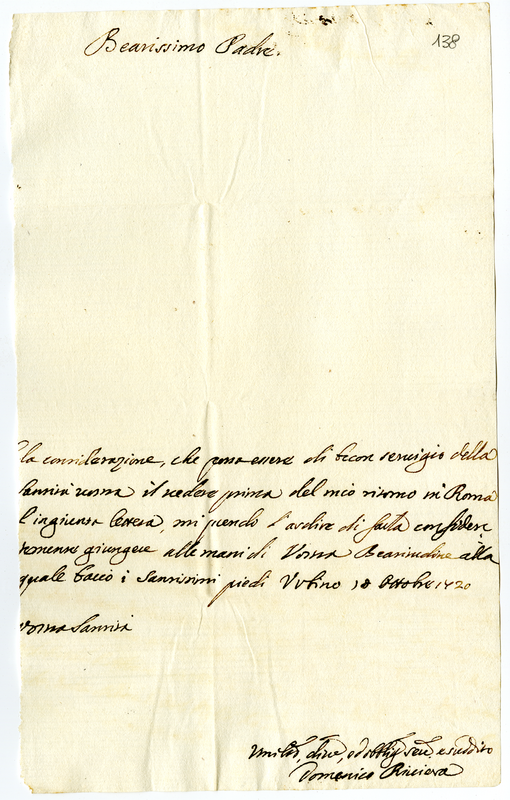 138
Beatissimo Padre.
la considerazione, che possa essere di buon servigio della
Santità vostra il vedere prima del mio ritorno in Roma
l'ingiunta lettera, mi prendo l'ardire di farla
giungere alle mani di Vostra Beatitudine alla
quale baccio i Santissimi piedi Urbino 18 Ottobre 1720
vostra Santità
e suddito
Domenico Riviera